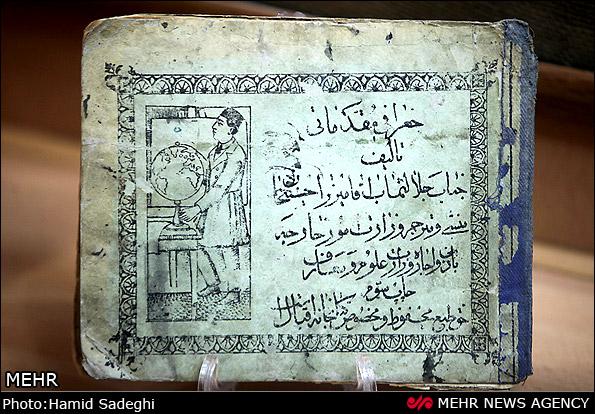 جغرافی مقدماتی
تالیف
جناب جلالتماب اقا میرزا
منشی و مترجم وزارت امور خارجه
باذن و اجازه وزارت علوم و معارف
چاپ سوم
حق طبع محفوظ و مخصوص
MEHR
Photo:Hamid Sadeghi
MEHR NEWS AGENCY